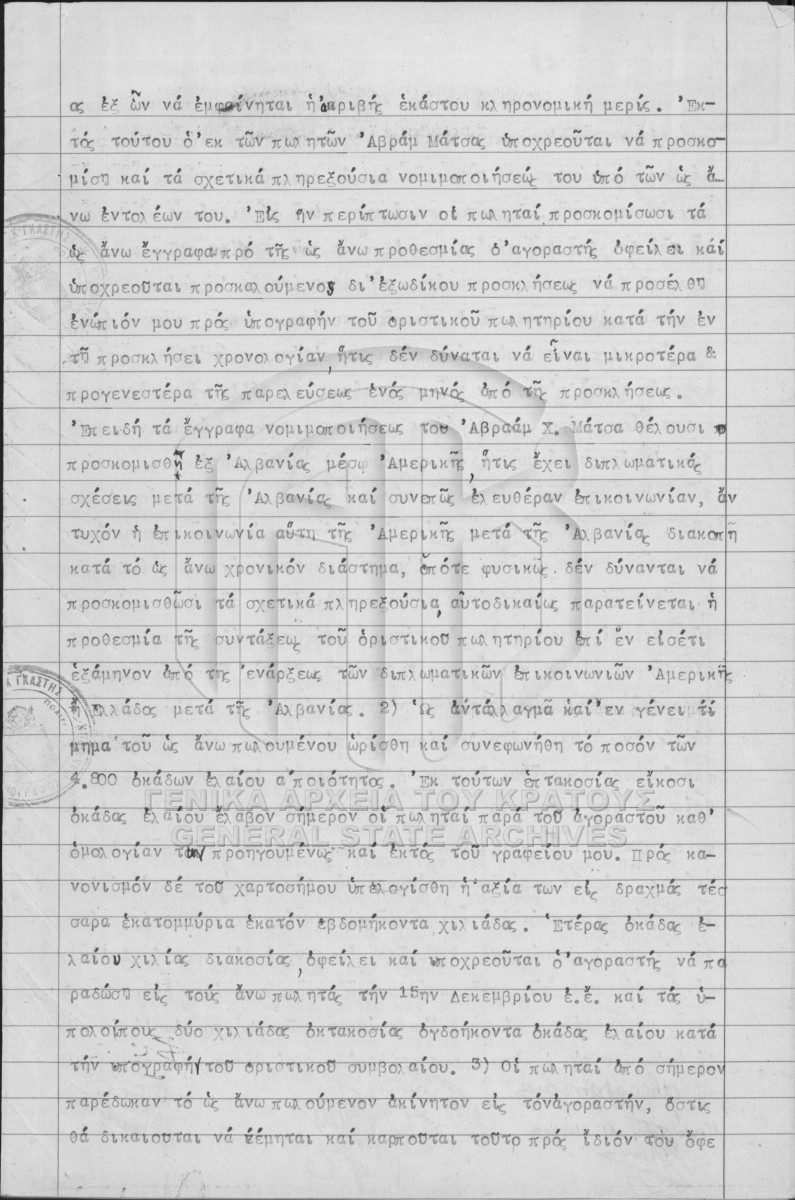 ας ἐξ ὧν νά ἐμφαίνηται ἡ ἀκριβής ἑκάστου κληρονομική μερίς. Ἐκ-
τός τούτου ὁ ἐκ τῶν πωλητῶν Ἀβράμ Μάτσας ὑποχρεοῦται νά προσκο-
μίσῃ καί τά σχετικά πληρεξούσια νομιμοποιήσεώς του ὑπό τῶν ὡς ἄ-
νω ἐντολέων του. Εἰς ἥν περίπτωσιν οἱ πωληταί προσκομίσωσι τά
ὡς ἄνω ἔγγραφα πρό τῆς ὡς ἄνω προθεσμίας ὁ ἀγοραστής ὀφείλει καί
ὑποχρεοῦται προσκαλούμενος δι' ἐξωδίκου προσκλήσεως νά προσέλθῃ
ἐνώπιόν μου πρός ὑπογραφήν τοῦ ὁριστικοῦ πωλητηρίου κατά τήν ἐν
τῇ προσκλήσει χρονολογίαν, ἥτις δέν δύναται νά εἶναι μικροτέρα &
προγενεστέρα τῆς παρελεύσεως ἑνός μηνός ἀπό τῆς προσκλήσεως.
Ἐπειδή τά ἔγγραφα νομιμοποιήσεως του Ἀβραάμ Χ. Μάτσα θέλουσι
προσκομισθῇ ἐξ Ἀλβανίας μέσῳ Ἀμερικῆς, ἥτις ἔχει διπλωματικάς
σχέσεις μετά τῆς Ἀλβανίας καί συνεπῶς ἐλευθέραν ἐπικοινωνίαν, ἄν
τυχόν ἡ ἐπικοινωνία αὕτη τῆς Ἀμερικῆς μετά τῆς Ἀλβανίας διακοπῇ
κατά τό ὡς ἄνω χρονικόν διάστημα, ὁπότε φυσικῶς δέν δύνανται νά
προσκομισθῶσι τά σχετικά πληρεξούσια, αὐτοδικαίως παρατείνεται ἡ
προθεσμία τῆς συντάξεως τοῦ ὁριστικοῦ πωλητηρίου ἐπί ἕν εἰσέτι
ἑξάμηνον ἀπό της ἐνάρξεως τῶν διπλωματικῶν ἐπικοινωνιῶν Ἀμερικῆς
ἤ Ἑλλάδος μετά τῆς Ἀλβανίας. 2) Ὡς ἀντάλλαγμα καί ἐν γένει τί
μημα τοῦ ὡς ἄνω πωλουμένου ὡρίσθη καί συνεφωνήθη τό ποσόν τῶν
4.800 ὀκάδων ἐλαίου α' ποιότητος. Ἐκ τούτων ἑπτακοσίας εἴκοσι
ὀκάδας ἐλαίου ἔλαβον σήμερον οἱ πωληταί παρά τοῦ ἀγοραστοῦ καθ'
ὁμολογίαν των προηγουμένως καί ἐκτός τοῦ γραφείου μου. Πρός κα-
νονισμόν δέ τοῦ χαρτοσήμου ὑπελογίσθη ἡ ἀξία των εἰς δραχμάς τέσ
σαρα ἑκατομμύρια ἑκατόν ἑβδομήκοντα χιλιάδας. Ἑτέρας ὀκάδας ἐ-
λαίου χιλίας διακοσίας, ὀφείλει καί ὑποχρεοῦται ὁ ἀγοραστής νά πα
ραδώσῃ εἰς τούς ἄνω πωλητάς τήν 15ην Δεκεμβρίου ἐ.ἔ. καί τάς ὑ-
πολοίπους δύο χιλιάδας ὀκτακοσίας ὀγδοήκοντα ὀκάδας ἐλαίου κατά
τήν ὑπογραφήν τοῦ ὁριστικοῦ συμβολαίου. 3) Οἱ πωληταί ἀπό σήμερον
παρέδωκαν τό ὡς ἄνω πωλούμενον ἀκίνητον εἰς τόν ἀγοραστήν, ὅστις
θά δικαιοῦται νά νέμηται καί καρποῦται τοῦτο πρός ἴδιόν του ὄφε
ΓΕΝΙΚΑ ΑΡΧΕΙΑ ΤΟΥ ΚΡΑΤΟΥΣ
GENERAL STATE ARCHIVES